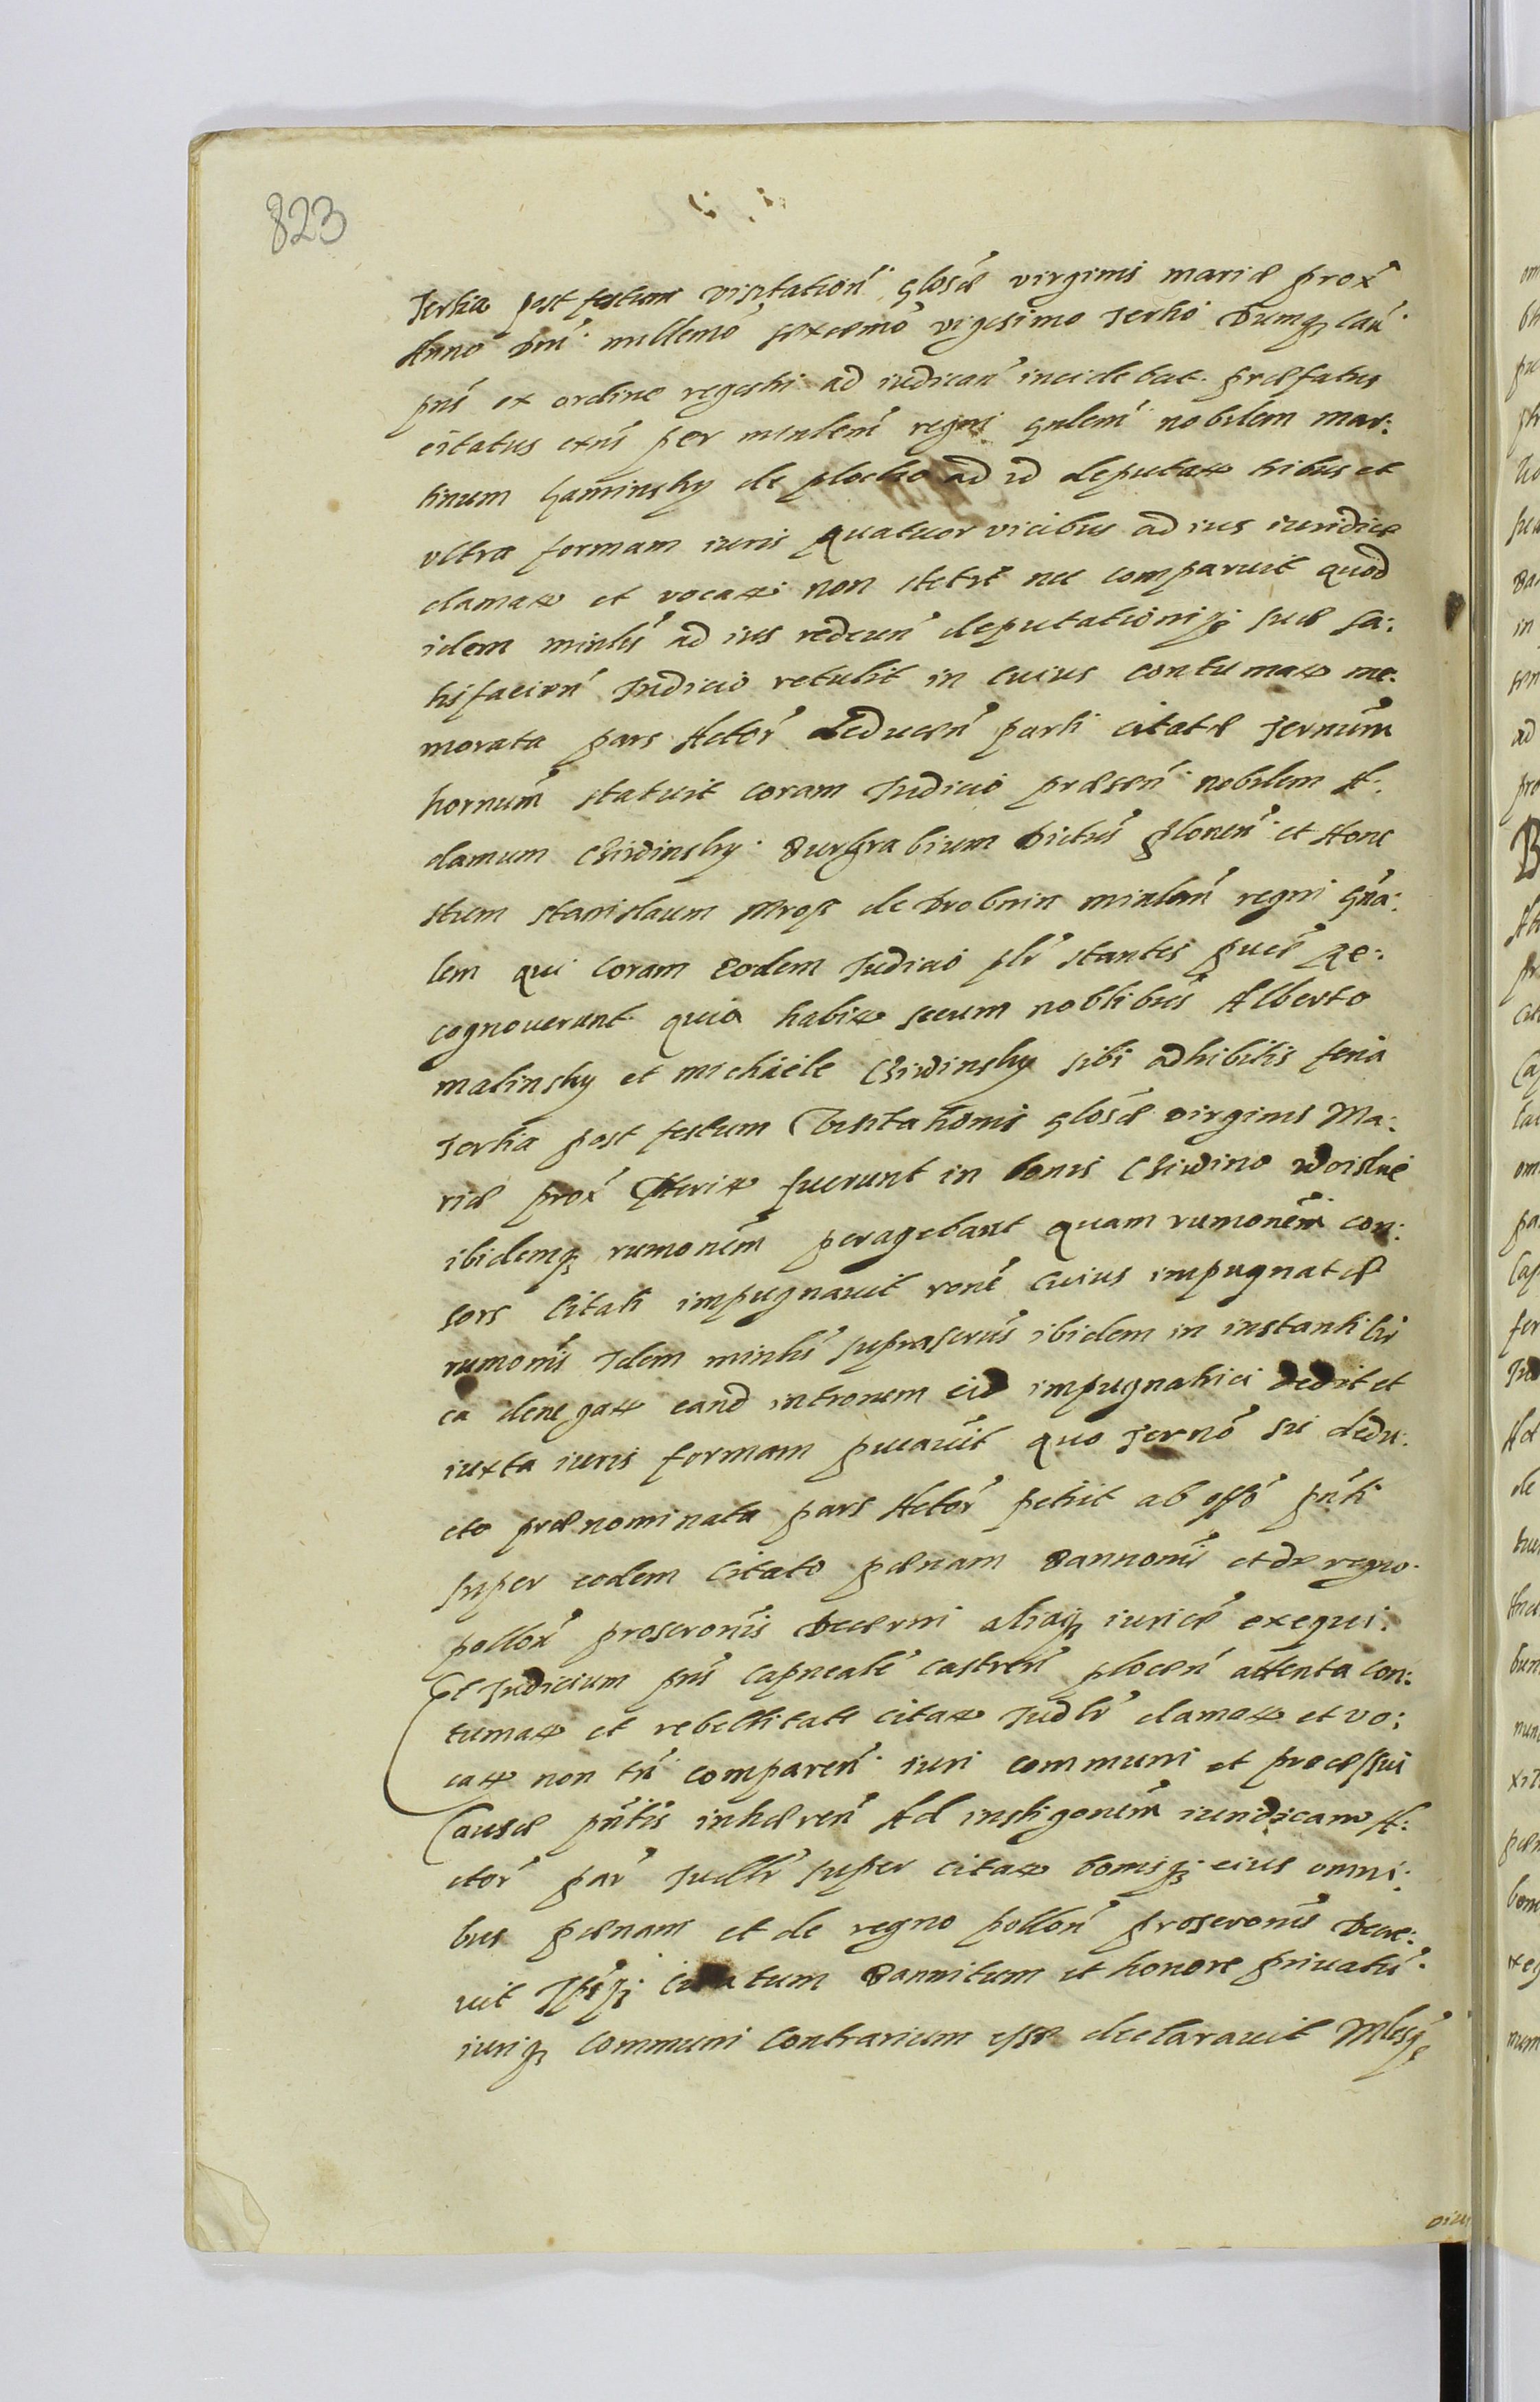 823
Tertia post festum visitation glosæ virginis mariæ prox
Anno Dni millemo sexcemo vigesimo Tertio Dumq cau
pns ex ordine regestri ad iudican incidebat præfatus
citatus exns per minlem regni gnlem nobilem mar:
tinum Gaminsky de plocko ad id deputat tribus et
ultra formam iuris quatuor vicibus ad ius iuridice
clamat et vocat non stetit nec comparuit quod
idem minlis ad ius redeun deputationiq suæ sa:
tisfacien Judicio retulit in cuius contumat me:
morata pars Actor deducen parti citatæ Jernum
hornum statuit coram Judicio præsen nobilem A:
damum Chudinsky Burgrabium Dictus plonen et Hone
stum stanislaum Mros de Drobnin minlem regni gna:
lem qui coram Eodem Judicio plr stantes puce re:
cognoverunt quia habit secum noblibus Alberto
malinsky et michaele Chudinsky sibi adhibitis feria
Tertia post festum Visitationis glosæ virginis Ma:
riæ prox pterit fuerunt in bonis Chudino
ibidemq rumonem peragebant quam rumonem con:
sors Citati impugnavit rone cuius impugnatæ
rumonis Idem minlis suprascrus ibidem in instanti
ea denegat eand intronem eid impugnatrici dedit et
iuxta iuris formam puavit quo Termo sic dedu:
cto prænominata pars Actor petiit ab offo pnti
super eodem Citato pœnam Bannonis et de regno
pollon proscronis Decærni aliaq iurice exequi.
Et Judicium pns capneale castren plocen attenta con:
tumat et rebellitate citat Judlr clamat et vo:
cat non tn comparen iuri communi et processui
Causæ pntis inhæren Ad instigonem iuridicam A:
ctor par Judlr super citat bonisq eius omni:
bus pœnam et de regno pollon proscronis Decre:
vit Ipsuq Citatum Bannitum et honore privatu
iuriq communi Contrarium esse declaravit